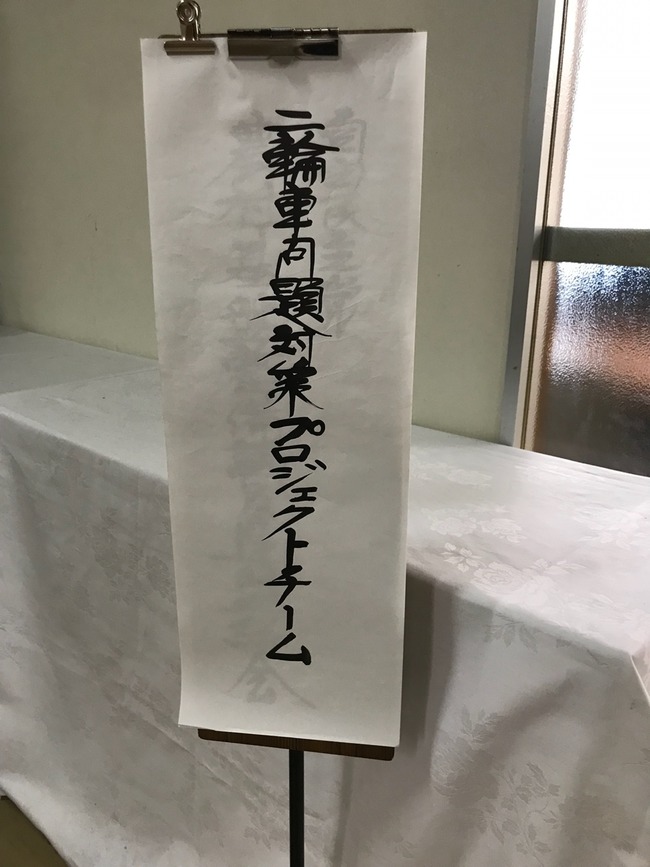 二輪車問題対策プロジェクトチーム
会